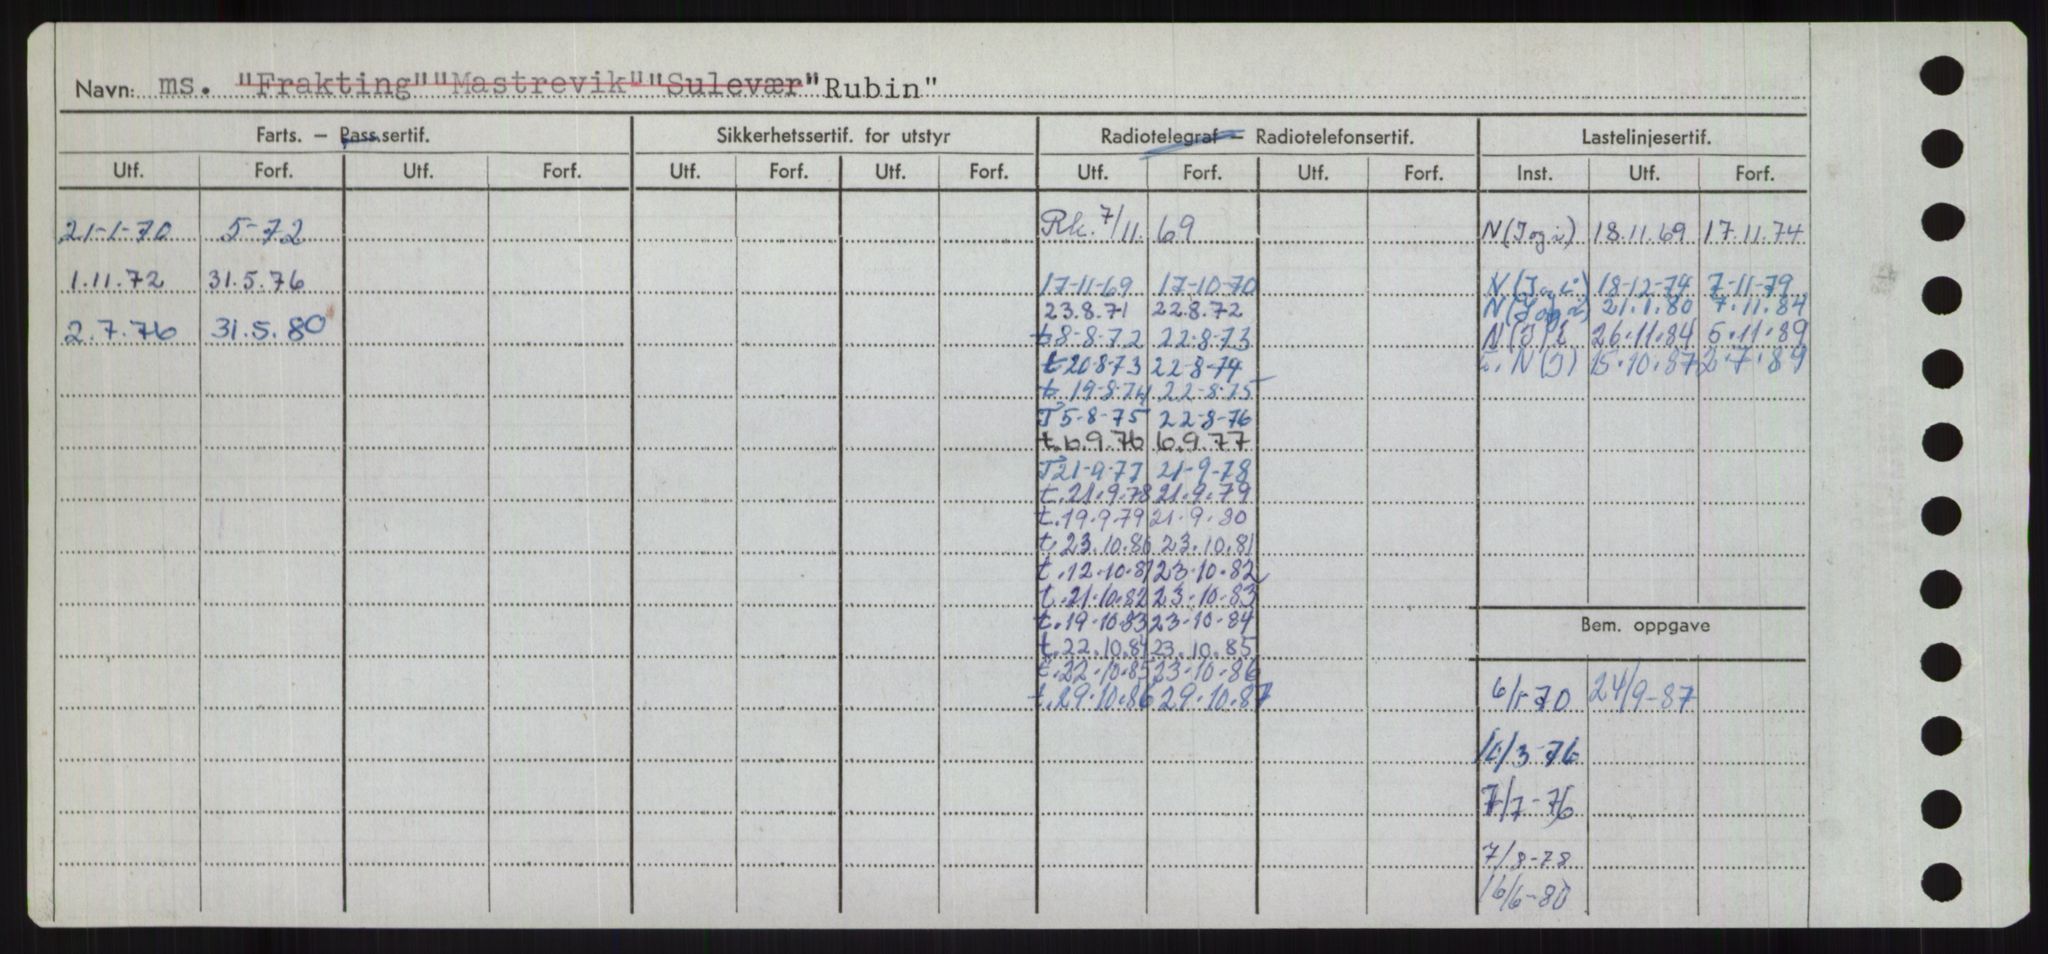 Navn: ms. "Frakting" "Mastrevik" "Sulevær" "Rubin"
Farts. — Pass.sertif. Sikkerhetssertif. for utstyr Radiotelegraf — Radiotelefonsertif. Lastelinjesertif.
Utf. Forf. Utf. Forf. Utf. Forf. Utf. Forf. Utf. Forf. Utf. Forf. Inst. Utf. Forf.
21-1-70 5-72 Rk. 7/11. 69 N(I og i) 18.11.69 17.11.74
1.11.72 31.5.76 17-11-69 17-10-70 N(I og i) 18-12-74 7-11-79
23.8.71 22.8.72 N(I og i) 21.1.80 7.11.84
2.7.76 31.5.80 t 8-8-72 22-8-73 N(I) i 26.11.84 5.11.89
t 20-8-73 22-8-74 i. N(I) 15.10.87 2.7.89
t 19-8-74 22-8-75
T 5-8-75 22-8-76
t. 6.9.76 6.9.77
T 21-9-77 21-9-78
t. 21.9.78 21.9.79
t. 19.9.79 21.9.80
t. 23.10.80 23.10.81
t. 12.10.81 23.10.82
t. 21.10.82 23.10.83
t. 19.10.83 23.10.84
Bem. oppgave
t. 22.10.84 23.10.85
t. 22.10.85 23.10.86
t. 29.10.86 29.10.87
6/1-70 24/9-87
/3-76
7/7-76
7/8-78
16/6-80